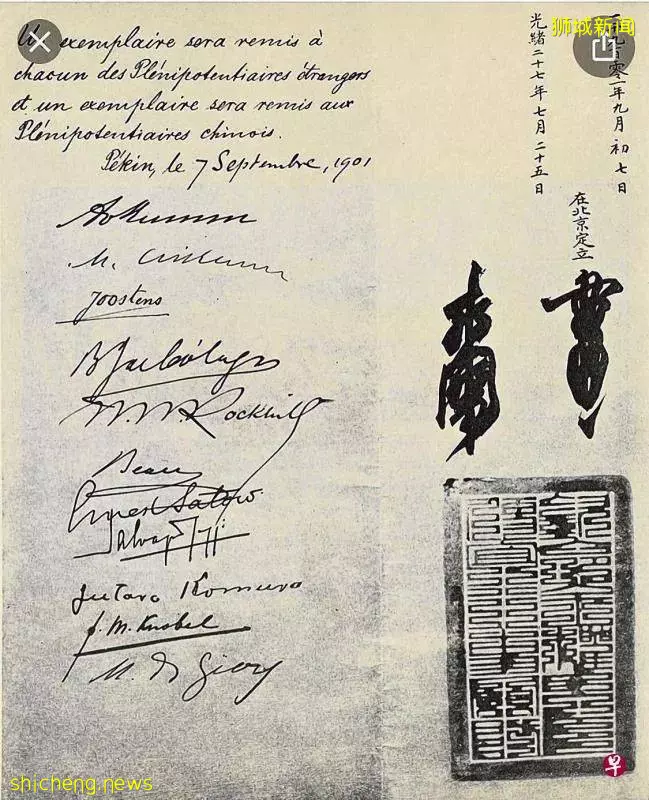 狮城新闻
Un exemplaire sera remis à
chacun des Plénipotentiaires étrangers
et un exemplaire sera remis aux
Plénipotentiaires chinois.
Pékin, le 7 Septembre, 1901
Joostens
W. W. Rockhill
Beau
Ernest Satow
Jutaro Komura
F. M. Knobel
M. de Giers
一千九百零一年九月初七日
光緒二十七年七月二十五日
在北京定立
早
shicheng.news